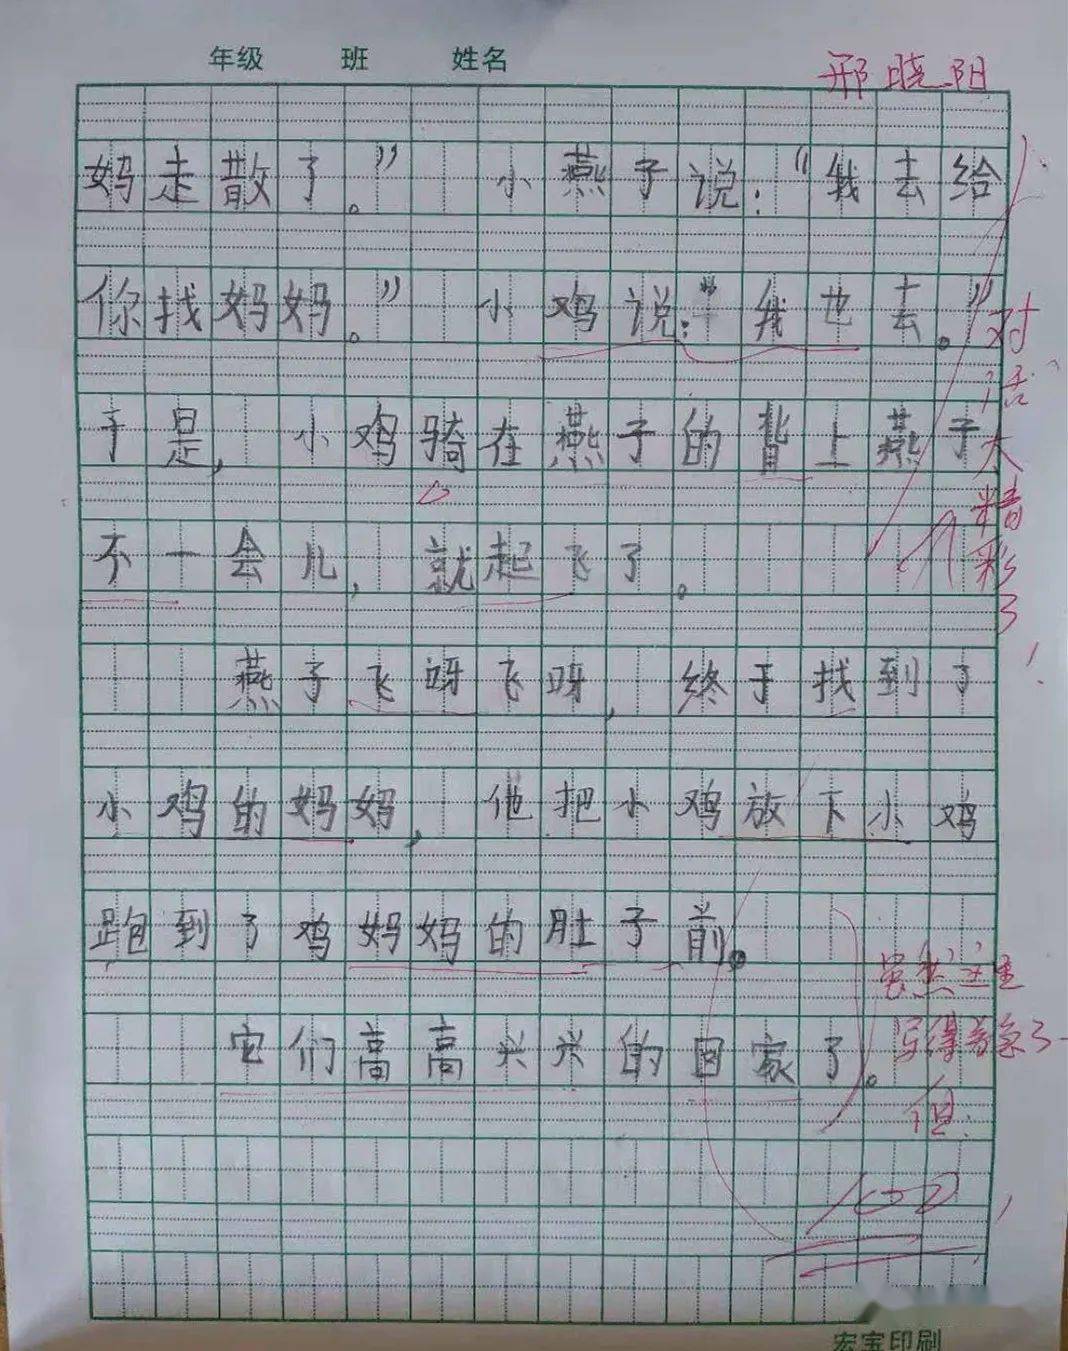 年级 班 姓名
邢晓阳
妈走散了。” 小燕子说：“我去给
你找妈妈。” 小鸡说：“我也去。”
于是，小鸡骑在燕子的背上燕子
不一会儿，就起飞了。
燕子飞呀飞呀，终于找到了
小鸡的妈妈，他把小鸡放下小鸡
跑到了鸡妈妈的肚子前。
它们高高兴兴的回家了。
对话太精彩了！
写得
但
100
宏宝印刷